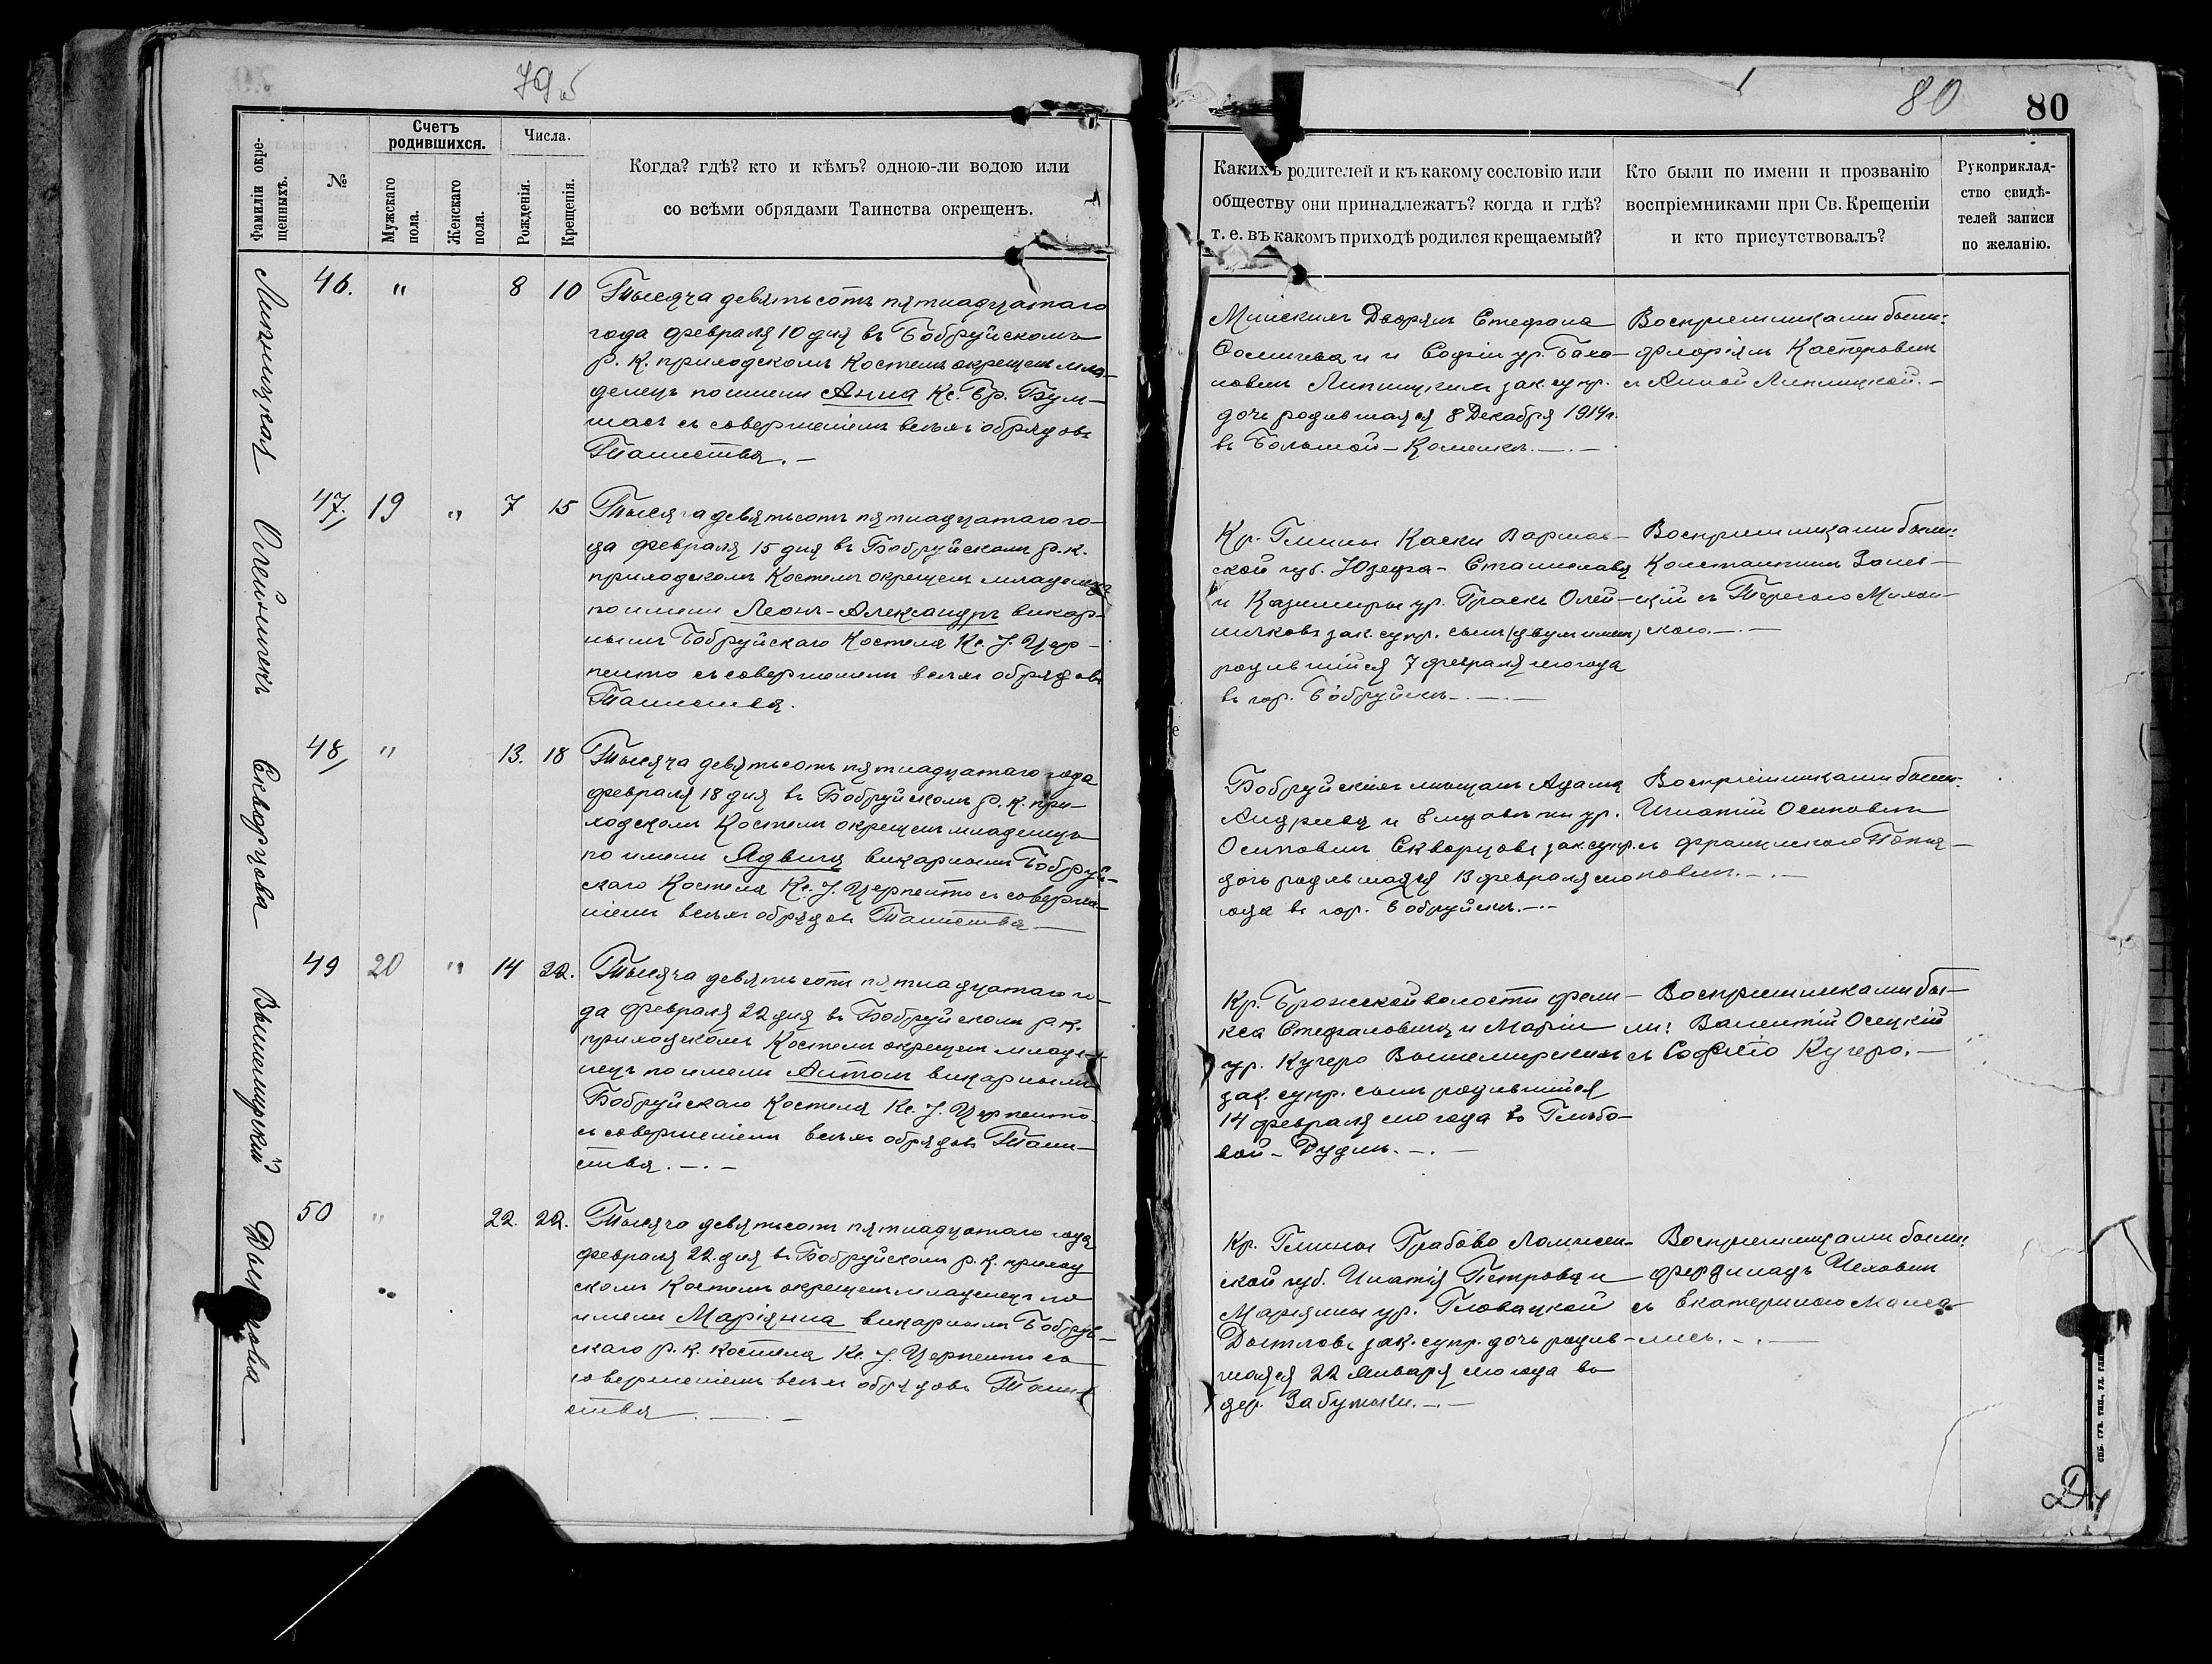 79 об
Фамиліи окре-
щенныхъ.
№
Счетъ
родившихся.
Мужскаго
пола.
Женскаго
пола.
Числа.
Рожденія.
Крещенія.
Когда? гдѣ? кто и кѣмъ? одною-ли водою или
со всѣми обрядами Таинства окрещенъ.
Липницкая
46. " 8 10
Тысяча девятьсотъ пятнадцатаго
года февраля 10 дня въ Бобруйскомъ
р. К. приходскомъ Костелѣ окрещенъ мла-
денецъ по имени Анна Кс. Бр. Бум-
шасъ съ совершеніемъ всѣхъ обрядовъ
Таинства.—
Олейничекъ
47. 19 " 7 15
Тысяча девятьсотъ пятнадцатаго го-
да февраля 15 дня въ Бобруйскомъ р. к.
приходскомъ Костелѣ окрещенъ младенецъ
по имени Леонъ-Александръ викар-
нымъ Бобруйскаго Костела Кс. J. Цер-
пенто съ совершеніемъ всѣхъ обрядовъ
Таинства.
Скворцова
48 " 13. 18
Тысяча девятьсотъ пятнадцатаго года
февраля 18 дня въ Бобруйскомъ р. к. при-
ходскомъ Костелѣ окрещенъ младенецъ
по имени Ядвига викарнымъ Бобруй-
скаго Костела Кс. J. Церпенто съ соверше-
ніемъ всѣхъ обрядовъ Таинства—
Вышемирскій
49 20 " 14 22.
Тысяча девятьсотъ пятнадцатаго го-
да февраля 22 дня въ Бобруйскомъ р. к.
приходскомъ Костелѣ окрещенъ младе-
нецъ по имени Антонъ викарнымъ
Бобруйскаго Костела Кс. J. Церпенто
съ совершеніемъ всѣхъ обрядовъ Таин-
ства.—.—
50 " 22. 22.
Тысяча девятьсотъ пятнадцатаго года
февраля 22 дня въ Бобруйскомъ р. к. приход
скомъ Костелѣ окрещенъ младенецъ по
имени Маріянна викарнымъ Бобруй-
скаго р. к. костела Кс. J. Церпенто со
совершеніемъ всѣхъ обрядовъ Таин-
ства—.—.—
80
80
Какихъ родителей и къ какому сословію или
обществу они принадлежатъ? когда и гдѣ?
т. е. въ какомъ приходѣ родился крещаемый?
Кто были по имени и прозванію
воспріемниками при Св. Крещеніи
и кто присутствовалъ?
Рукоприклад-
ство свидѣ-
телей записи
по желанію.
Минскихъ Дворянъ Стефана
и Софіи ур. Бахо-
новичъ Липницкихъ зак. супр.
дочь родившаяся 8 Декабря 1914 г.
въ Большой-Каменкѣ.—.—
Воспріемниками были:
Флоріянъ Касперовичъ
съ Анной Липницкой.—
Кр. Гмины Каски Варшав-
ской губ. Юзефа-Станислава
и Казимиры ур. Праскъ Олей-
ничковъ зак. супр. сынъ (двухъ именъ)
родившійся 7 февраля сего года
въ гор. Бобруйскѣ—.—
Воспріемниками были:
Константинъ
съ
Бобруйскихъ мѣщанъ Адама
Андреева и ур.
Осиповичъ Скворцовъ зак. супр.
дочь родившаяся 13 февраля сего
года въ гор. Бобруйскѣ.—
Воспріемниками были:
Игнатій Осиповичъ
съ
Кр. Брожской волости Фели-
кса Стефановича и Маріи
ур. Кучеро Вышемирскихъ
зак. супр. сынъ родившійся
14 февраля сего года въ Глѣбо-
вой-Рудни.—.—
Воспріемниками бы-
ли: Валентій Осецкій
съ Софіею Кучеро.—
Кр. Гмины Грабово Ломжин-
ской губ. Игнатія Петрова и
Маріянны ур. Гловацкой
зак. супр. дочь родив-
шаяся 22 Января сего года въ
дер. Забудьки.—.—
Воспріемниками были:
Фердинадъ Чеховичъ
съ Екатериною